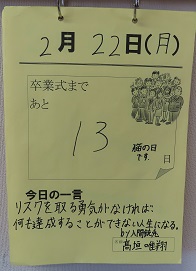 2月22日(月)
卒業式まで
あと
13
日
猫の日
です。
今日の一言
リスクを取る勇気がなければ、
何も達成することができない人生になる。
by人間
高垣 唯翔